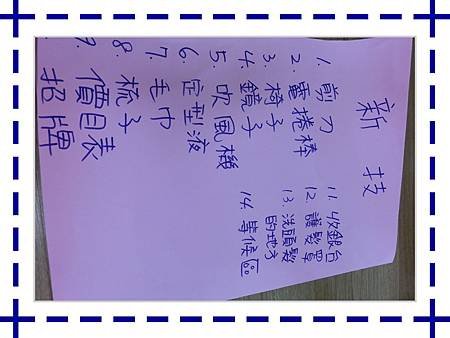 新 技
1. 剪刀
2. 電捲棒
3. 椅子
4. 鏡子
5. 吹風機
6. 定型液
7. 毛巾
8. 梳子
9. 價目表
招牌
11. 收銀台
12. 護髮罩
13. 洗頭髮
的地方
14. 等候區